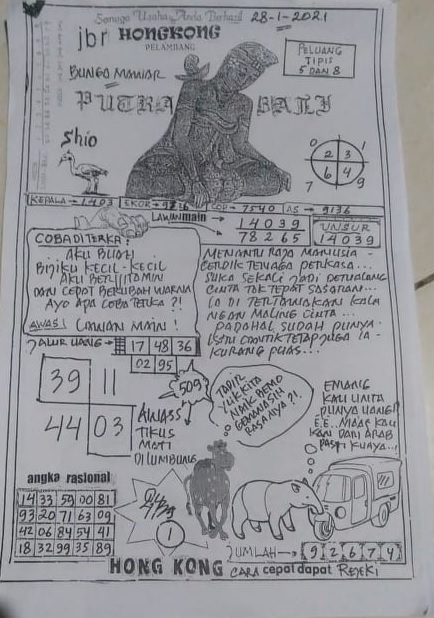 Semoga Usaha Anda Berhasil
28-1-2021
jbr HONGKONG
PELAMBANG
BUNGO MAWAR
PELUANG
TIPIS
5 DAN 8
PUTRA BALI
Shio
0 1
2 3
6 4
7 9
KEPALA → 1403 EKOR → 9236 COP → 7540 AS → 9136
LAWAN main
14039
78265
UNSUR
14039
COBA DITERKA:
AKU BUAH
BIJIKU KECIL-KECIL
AKU BERVITAMIN
DAN CEPOT BERUBAH WARNA
AYO APA COBA TERKA ?!
AWAS! LAWAN MAIN!
MENANTU RAJA MANUSIA -
CERDIK TENAGA PERKASA...
SUKA SEKALI JADI PETUALANG
CINTA TAK TEPAT SASARAN...
IA DI TERTAWAKAN KALA
NGAN MALING CINTA...
PADAHAL SUDAH PUNYA
ISTRI CANTIK TETAP JUGA IA -
KURANG PUAS...
JALUR UANG → 17 48 36
02 95
39 11
44 03
509
AWASS
TIKUS
MATI
DI LUMBUNG
TAPIR
YUK KITA
NAIK BEMO
GEMANA SIH
RASANYA ?!
EMANG
KAU UNTA
PUNYA UANG?
E.E.. MAAF KAU
KAN DARI ARAB
PASTI KUAYA...
angka rasional
14 33 59 00 81
93 20 71 63 09
42 06 84 54 41
18 32 99 35 89
1
JUMLAH → 9 2 6 7 4
HONG KONG CARA cepat dapat REJEKI